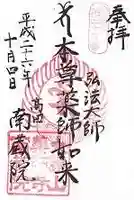 奉拝
弘法大師
本草薬師如来
平成二十六年
十月四日
高田
南蔵院